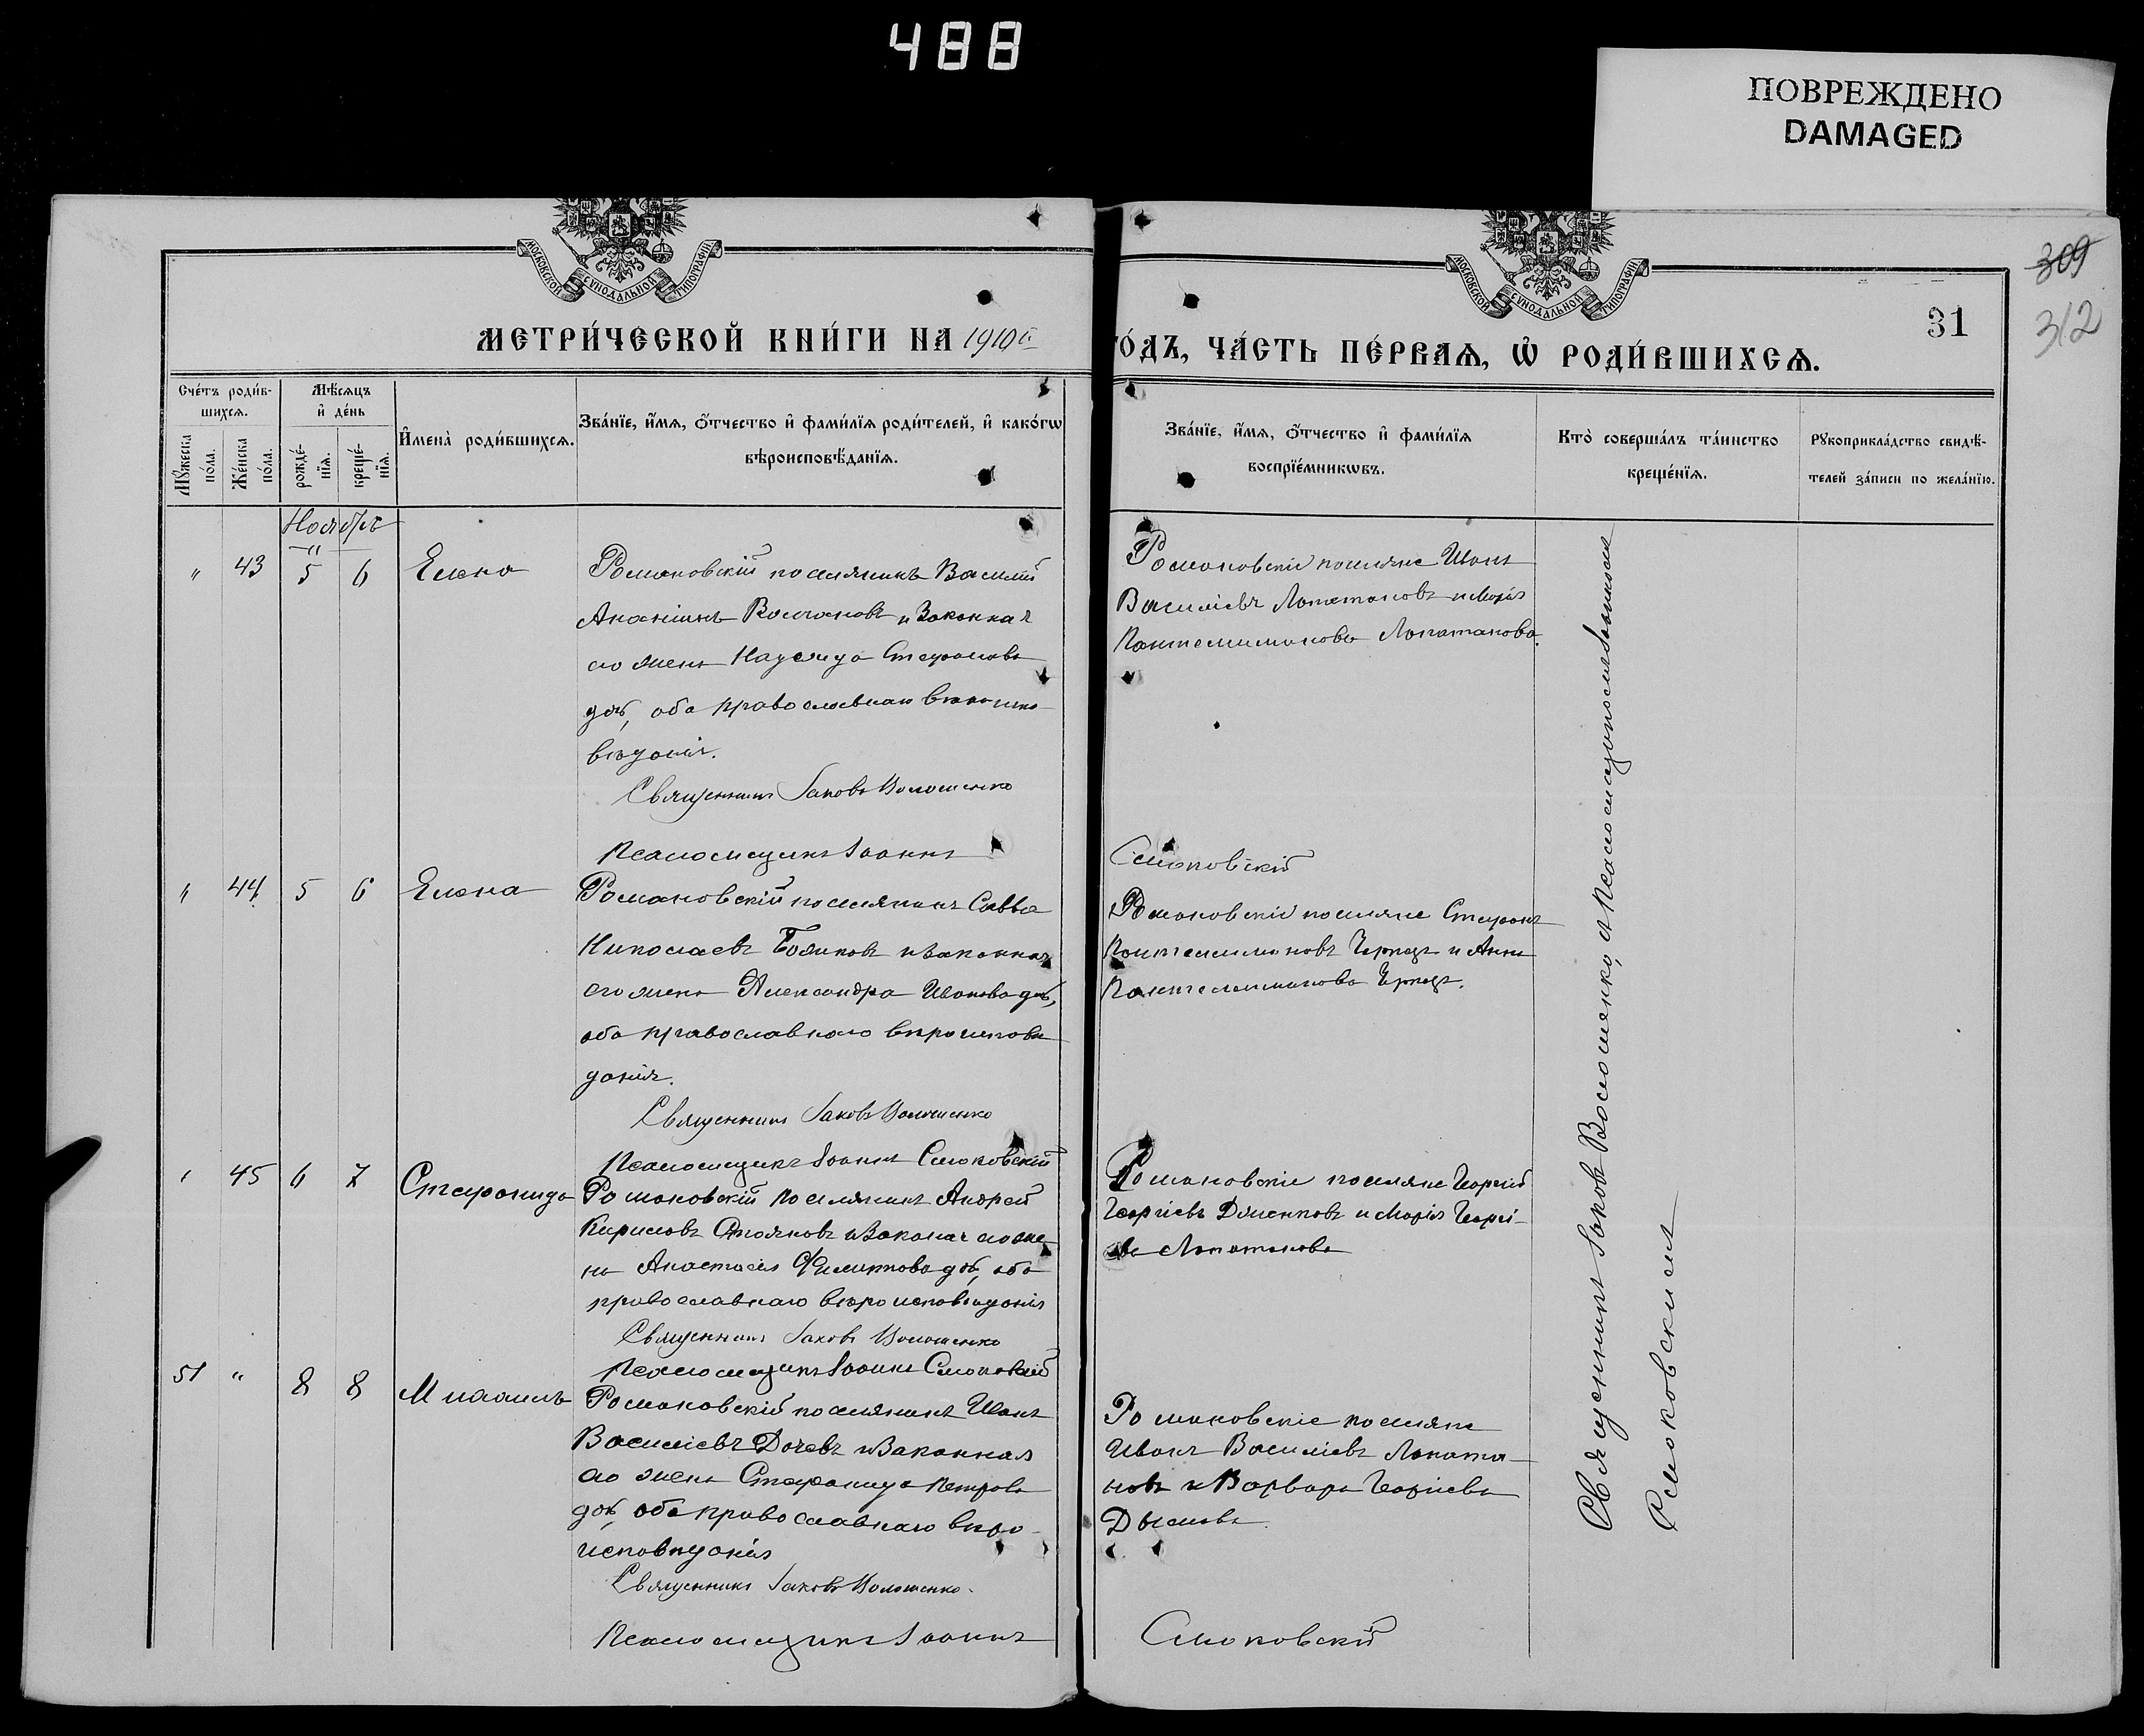 488
ПОВРЕЖДЕНО
DAMAGED
309
312
31
МОСКОВСКОЙ СѴНОДАЛЬНОЙ ТИПОГРАФІИ
МОСКОВСКОЙ СѴНОДАЛЬНОЙ ТИПОГРАФІИ
МЕТРИ́ЧЕСКОЙ КНИ́ГИ НА 1910 г.
ГО́ДЪ, ЧА́СТЬ ПЕ́РВАѦ, Ѡ҆ РОДИ́ВШИХСѦ.
Сче́тъ роди́в-
шихсѧ.
Мꙋ́жеска
по́ла.
Же́нска
по́ла.
Мѣ́сѧцъ
и҆ де́нь
рожде́-
нїѧ.
креще́-
нїѧ.
И҆мена̀ роди́вшихсѧ.
Зва́нїе, и҆́мѧ, ѻ҆́тчество и҆ фами́лїѧ роди́телей, и҆ како́гѡ
вѣроисповѣ́данїѧ.
Зва́нїе, и҆́мѧ, ѻ҆́тчество и҆ фами́лїѧ
воспрїе́мникѡвъ.
Кто̀ соверша́лъ та́инство
креще́нїѧ.
Рꙋкоприкла́дство свидѣ́-
телей за́писи по жела́нїю.
Ноябрь
" 43 5 6 Елена
Романовскій поселянинъ Василій
Ананіинъ Волчановъ и законная
его жена Надежда Стефанова
доч, оба православнаго вѣроиспо-
вѣданія.
Священникъ Іаковъ Волошенко
Псаломщикъ Іоаннъ
Смоковскій
Романовскіе поселяне Иванъ
Василіевъ Лопатановъ и Марія
Пантелимонова Лопатанова.
" 44 5 6 Елена
Романовскій поселянинъ Савва
Николаевъ Божиковъ и законная
его жена Александра Иванова доч,
оба православнаго вѣроисповѣ
данія.
Священникъ Іаковъ Волошенко
Псаломщикъ Іоаннъ Смоковскій
Романовскіе поселяне Стефанъ
Пантелимоновъ и Анна
Пантелимонова
" 45 6 7 Стефанида
Романовскій поселянинъ Андрей
Кириловъ Стояновъ и законая его же-
на Анастасія Филиппова доч, оба
православнаго вѣроисповѣданія
Священникъ Іаковъ Волошенко
Псаломщикъ Іоаннъ Смоковскій
Романовскіе поселяне Георгій
Георгіевъ и Марія Георгі-
ева Лопатанова
51 " 8 8 Михаилъ
Романовскій поселянинъ Иванъ
Василіевъ Дочевъ и законная
его жена Стефанида Петрова
доч, оба православнаго вѣро-
исповѣданія
Священникъ Іаковъ Волошенко.
Псаломщикъ Іоаннъ
Смоковскій
Романовскіе поселяне
Иванъ Василіевъ Лопата-
новъ и Варвара Георгіева
Дымова.
Священникъ Іаковъ Волошенко, съ Псаломщикомъ Іоанномъ
Смоковскимъ